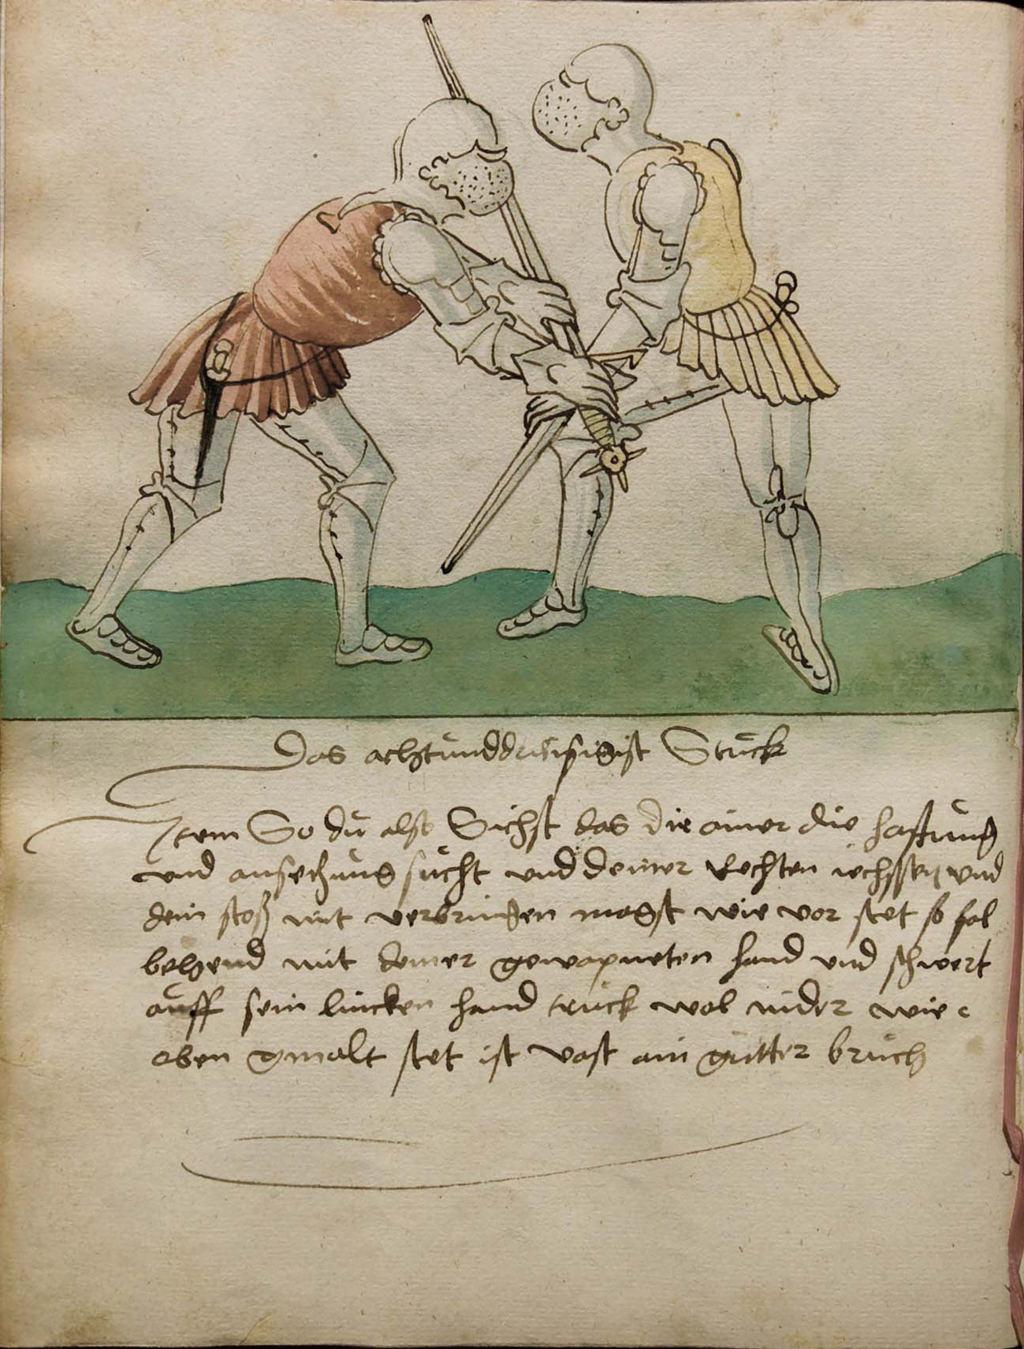 Das achtunddreissigist Stuck
Item So du alst Sichst das dir ainer die hafftung
und ansetzung sucht und deiner Rechten iechssen und
dein stoß mit verbringen magst wie vor stet so fal
behend mit deiner gewapneten hand und schwert
auff sein lincken hand truck wol nider wie
oben gmalt stet ist vast ain gutter bruch